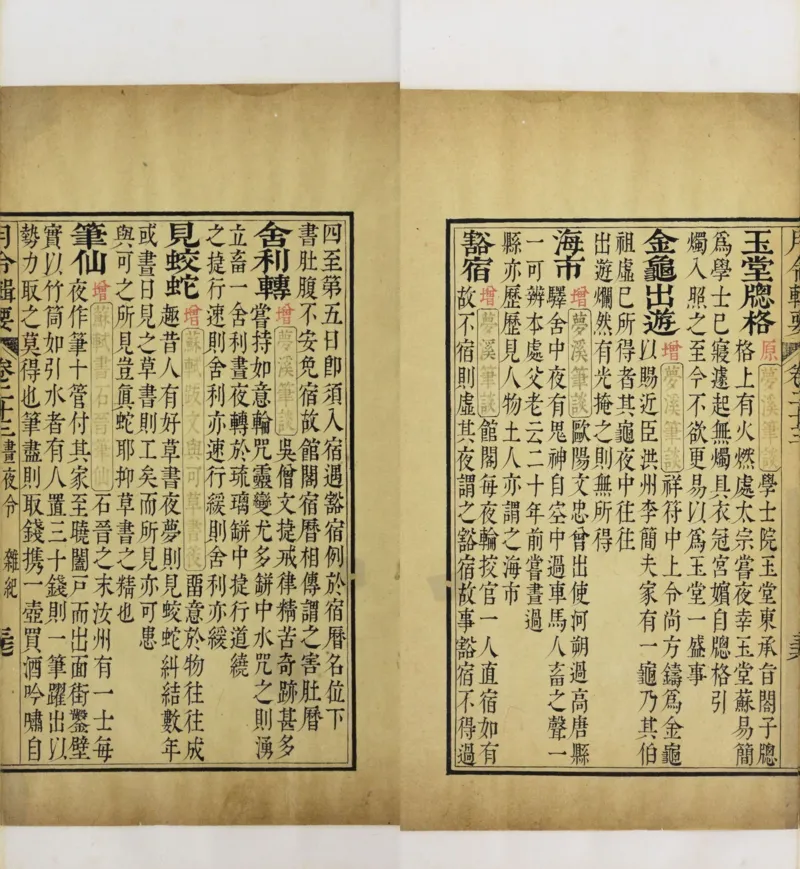 月令輯要 卷二十三
玉堂牕格 原 夢溪筆談 學士院玉堂東承旨閣子牕
格上有火燃處太宗嘗夜幸玉堂蘇易簡
為學士已寢遽起無燭具衣冠宮嬪自牕格引
燭入照之至今不欲更易以為玉堂一盛事
金龜出遊 增 夢溪筆談 祥符中上令尚方鑄為金龜
以賜近臣洪州李簡夫家有一龜乃其伯
祖虛已所得者其龜夜中往往
出遊爛然有光掩之則無所得
海市 增 夢溪筆談 歐陽文忠曾出使河朔過高唐縣
驛舍中夜有鬼神自空中過車馬人畜之聲一
一可辨本處父老云二十年前嘗晝過
縣亦歷歷見人物土人亦謂之海市
豁宿 增 夢溪筆談 館閣每夜輪挍官一人直宿如有
故不宿則虛其夜謂之豁宿故事豁宿不得過
四至第五日卽須入宿遇豁宿例於宿曆名位下
書肚腹不安免宿故館閣宿曆相傳謂之害肚曆
舍利轉 增 夢溪筆談 吳僧文捷戒律精苦奇跡甚多
嘗持如意輪咒靈變尤多缾中水咒之則湧
立畜一舍利晝夜轉於琉璃缾中捷行道繞
之捷行速則舍利亦速行緩則舍利亦緩
見蛟蛇 增 蘇軾跋文與可草書後 留意於物往往成
趣昔人有好草書夜夢則見蛟蛇糾結數年
或晝日見之草書則工矣而所見亦可患
與可之所見豈眞蛇耶抑草書之精也
筆仙 增 蘇軾書石晉筆仙 石晉之末汝州有一士每
夜作筆十管付其家至曉闔戸而出面街鑿壁
實以竹筒如引水者有人置三十錢則一筆躍出以
勢力取之莫得也筆盡則取錢携一壺買酒吟嘯自
月令輯要 卷二十三 晝夜令 雜紀